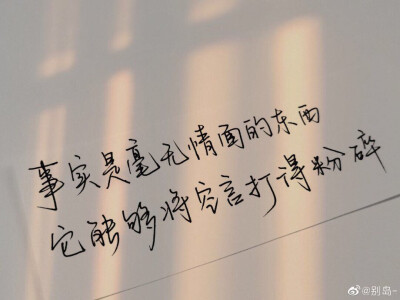 事实是毫无情面的东西
它能够将空言打得粉碎
@别岛-